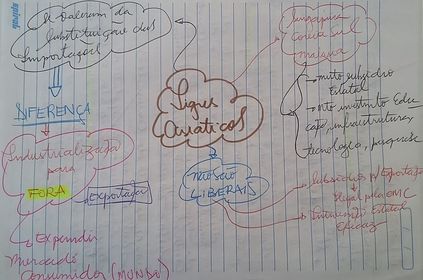 se valeram da
substituição das
Importações
DIFERENÇA
Industrialização
para
FORA
Exportação
Expandir
Mercado
Consumidor (MUNDO)
Tigres
Asiáticos
NÃO SÃO
LIBERAIS
Singapura
Coreia Sul
Malásia
→ mto subsídio
Estatal
→ mto investimto Edu
cação, infraestrutura,
tecnologia, pesquisa
Subsídios p/ Exportação
Ilegal pela OMC
Intervenção Estatal
Eficaz